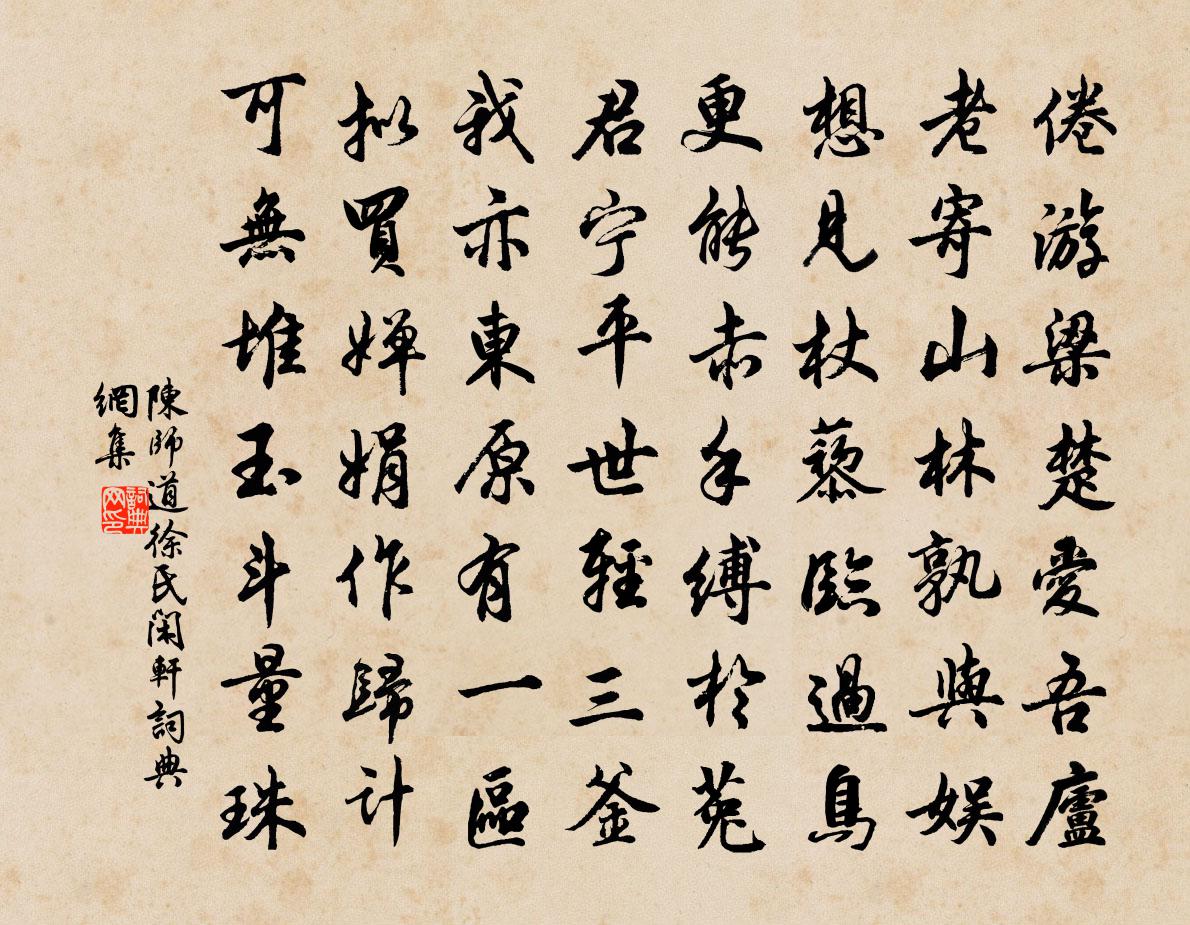 倦游梁楚愛吾廬
老寄山林孰與娛
想見杖藜臨過鳥
更能赤手縛於菟
君寧平世輕三釜
我亦東原有一區
拟買嬋娟作歸計
可無堆玉斗量珠
陳師道徐氏閑軒詞典
網集
詞典
网印